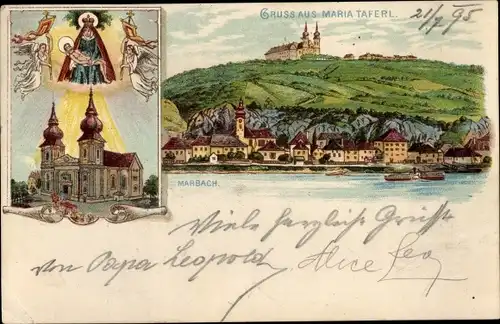 GRUSS AUS MARIA TAFERL.
21/7 95
MARBACH.
Viele herzliche Grüße
von Papa Leopold